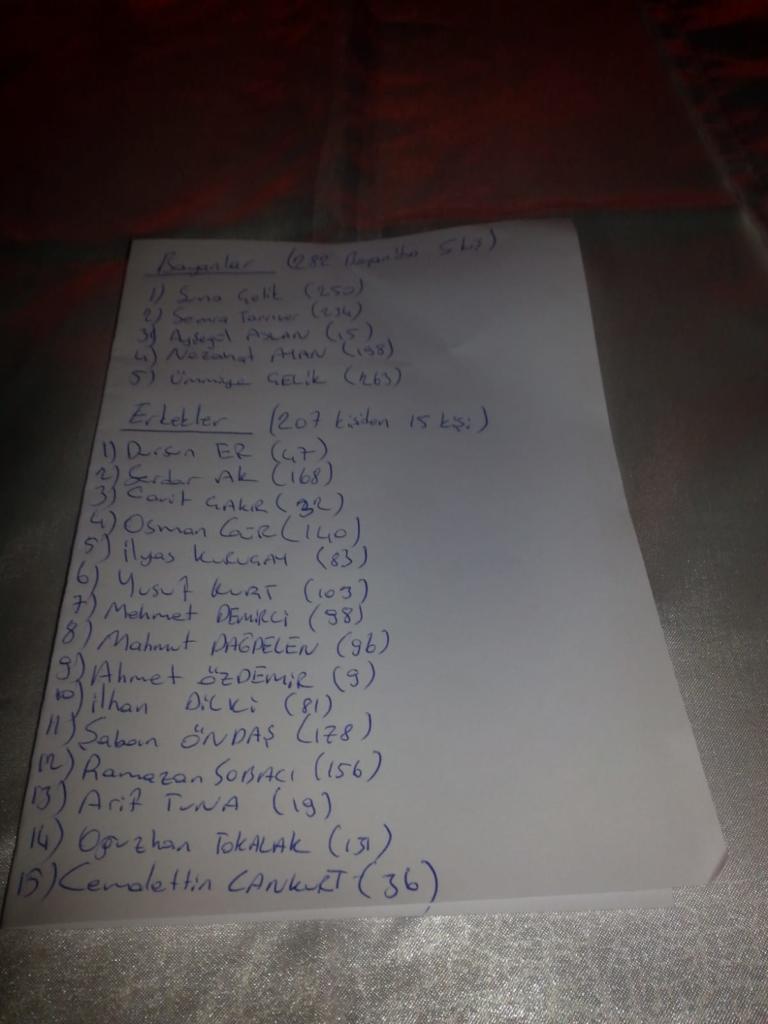 Bayanlar (282 Bayandan 5 kişi)
1) Suna Çelik (250)
2) Semra (234)
3) Ayşegül ASLAN (15)
4) Nezahat (198)
5) Ümmiye ÇELİK (263)
Erkekler (207 kişiden 15 kişi)
1) Dursun ER (47)
2) Serdar AK (168)
3) Cavit ÇAKIR (32)
4) Osman GÜR (140)
5) İlyas KURUÇAY (83)
6) Yusuf KURT (109)
7) Mehmet DEMİRCİ (98)
8) Mahmut DAĞDELEN (96)
9) Ahmet ÖZDEMİR (9)
10) İlhan DİLKİ (81)
11) Şaban ÖNDAŞ (178)
12) Ramazan SOBACI (156)
13) Arif TUNA (19)
14) Oğuzhan TOKALAK (131)
15) Cemalettin CANKURT (36)